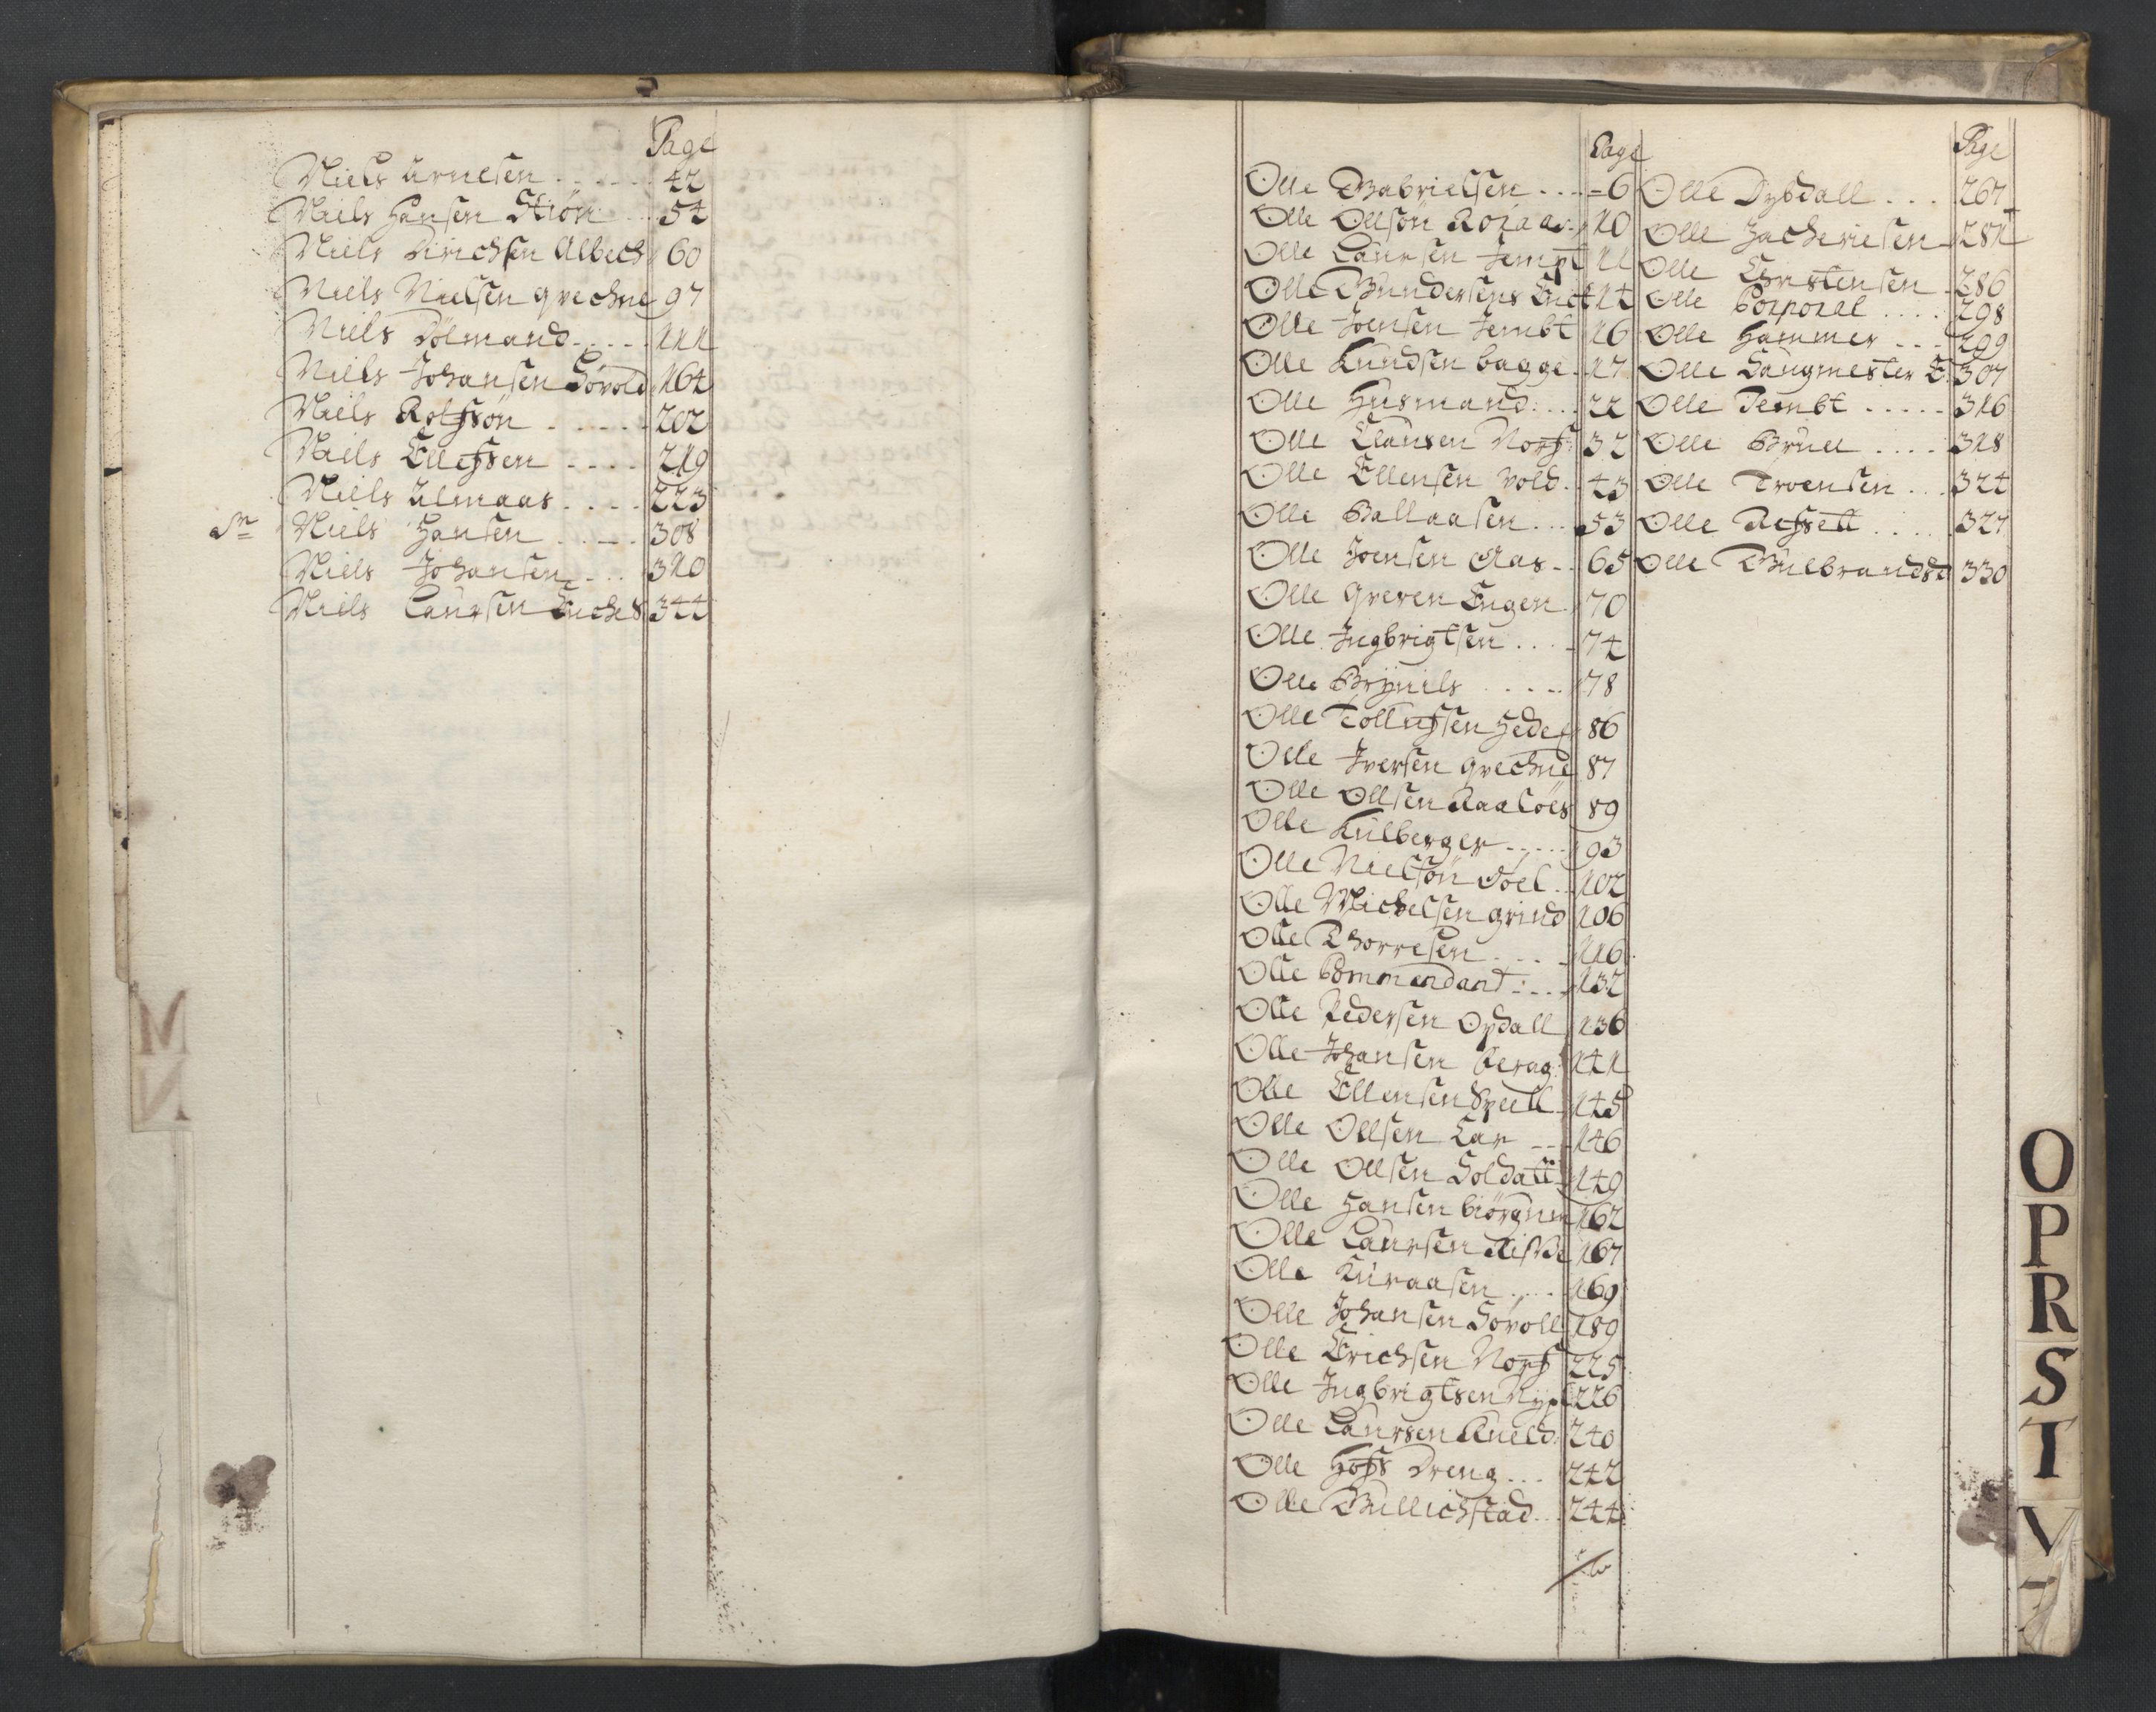 Page
Niels Arnesen . . . . 42
Niels Hansen Stiön . . 54
Niels Dirichsen Albech 60
Niels Nielsen grechne 97
Niels Dölmand . . . . 111
Niels Johansen Sövold 164
Niels Rolfsön . . . . . 202
Niels Ellefsen . . . . 219
Niels Almaas . . . . 223
Sr Niels Hansen . . . . 308
Niels Johansen . . . 310
Niels Laursen 344
M
N
Page
Olle Gabrielsen . . . . 6
Olle Ollsön Roiaas 10
Olle Laursen Jempt 11
Olle Gundersens 14
Olle Joensen Jembt 16
Olle Knudsen bagge 17
Olle Husmand . . . 22
Olle Clausen Norf: 32
Olle Ellensen vold . 43
Olle Ballaasen . . . 53
Olle Joensen Aas . . 65
Olle greven Engen 70
Olle Ingbrigtsen . . . 74
Olle Brÿnils . . . . 78
Olle Tollufsen Hede 86
Olle Iversen grechne 87
Olle Ollsen Raalöes 89
Olle Kulberger . . . . 93
Olle Nielsön Döel . . 102
Olle Michelsen grind 106
Olle Thorresen . . . . 116
Olle Commendant . . . 132
Olle Pedersen Opdall 136
Olle Johansen berag: 141
Olle Ellensen Spell 145
Olle Ollsen Lar . . 146
Olle Ollsen Soldatt 149
Olle Hansen 162
Olle Laursen 167
Olle Kuraasen . . . . 169
Olle Johansen Sovoll 189
Olle Erichsen Norf 225
Olle Ingbrigtsen Nyp 226
Olle Laursen Kueld: 240
Olle Hofs Dreng . . . 242
Olle Gullichstad . . 244
Page
Olle Dybdall . . . 267
Olle Zacheriesen 281
Olle Cirstensen 286
Olle Corporal . . . . 298
Olle Hammer . . . 299
Olle Saugmester E: 307
Olle Jembt . . . . . 316
Olle Bruu . . . . 318
Olle Troensen . . . 324
Olle Ressell . . . . 327
Olle Gulbrandsd 330
O
P
R
S
T
V